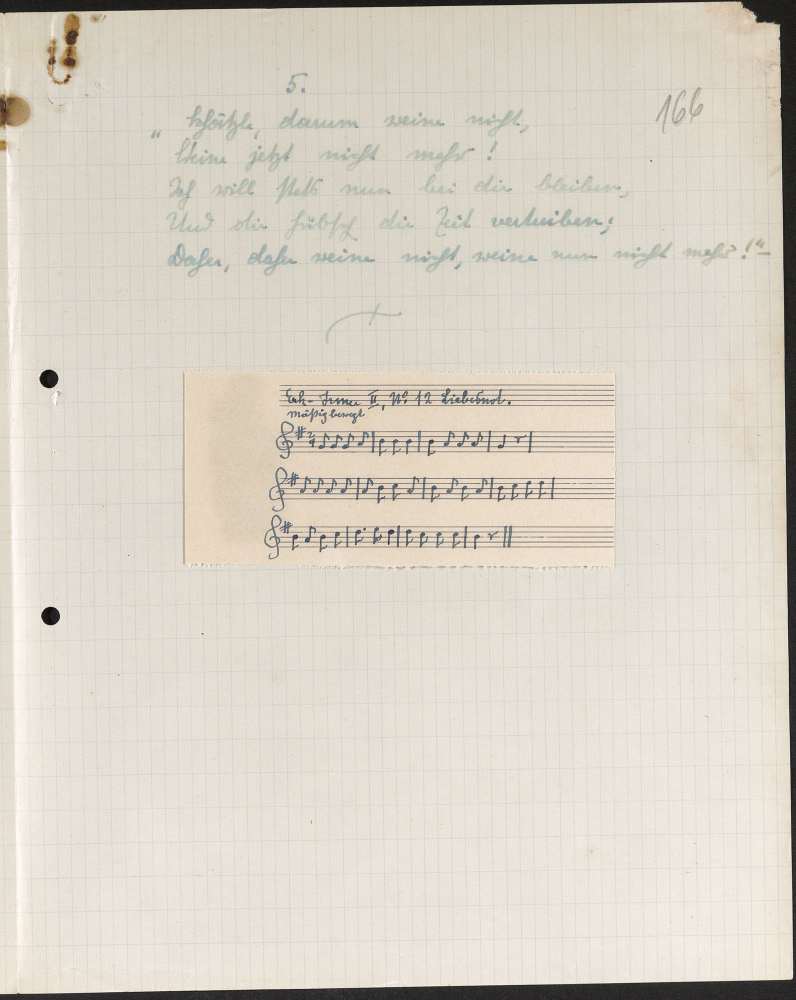 5.
166
„Schätzle, darum weine nicht,
Weine jetzt nicht mehr!
Ich will stets nun bei dir bleiben,
Und dir hübsch die Zeit vertreiben;
Daher, daher weine nicht, weine nun nicht mehr!"
Erk-Irmer II, No 12 Liebesnot.
Mäßig bewegt